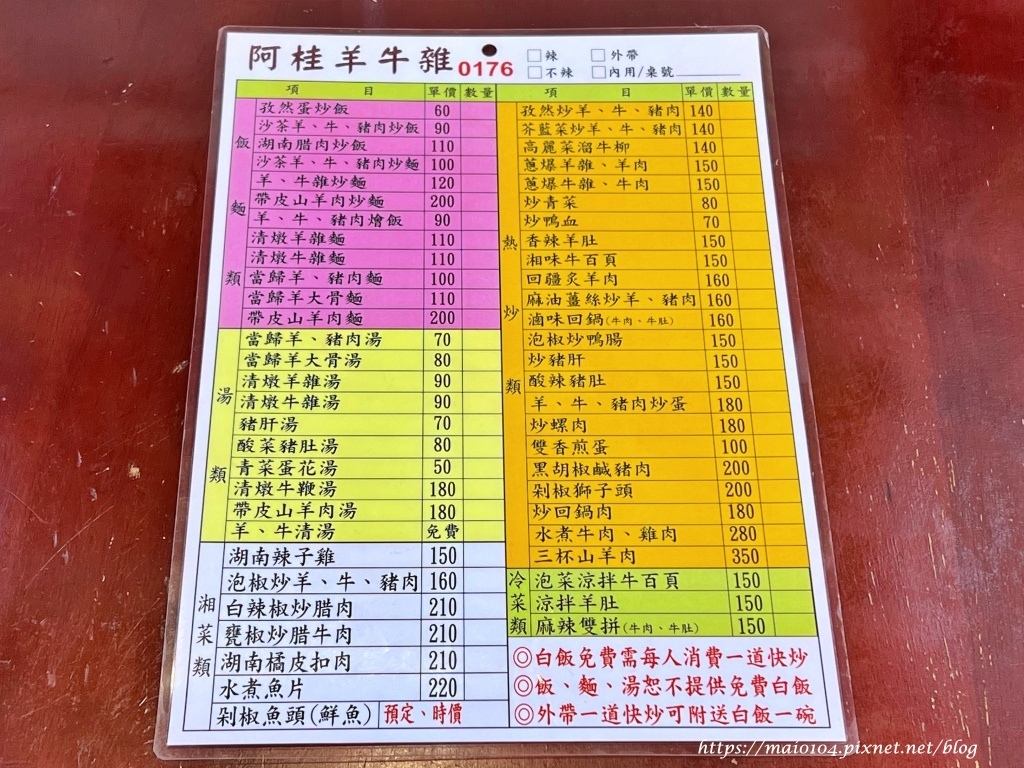 阿桂羊牛雜 0176
□辣 □外帶
□不辣 □內用/桌號
項目 單價 數量
飯麵類
孜然蛋炒飯 60
沙茶羊、牛、豬肉炒飯 90
湖南腊肉炒飯 110
沙茶羊、牛、豬肉炒麵 100
羊、牛雜炒麵 120
帶皮山羊肉炒麵 200
羊、牛、豬肉燴飯 90
清燉羊雜麵 110
清燉牛雜麵 110
當歸羊、豬肉麵 100
當歸羊大骨麵 110
帶皮山羊肉麵 200
湯類
當歸羊、豬肉湯 70
當歸羊大骨湯 80
清燉羊雜湯 90
清燉牛雜湯 90
豬肝湯 70
酸菜豬肚湯 80
青菜蛋花湯 50
清燉牛鞭湯 180
帶皮山羊肉湯 180
羊、牛清湯 免費
湘菜類
湖南辣子雞 150
泡椒炒羊、牛、豬肉 160
白辣椒炒腊肉 210
甕椒炒腊牛肉 210
湖南橘皮扣肉 210
水煮魚片 220
剁椒魚頭(鮮魚) 預定、時價
項目 單價 數量
熱炒類
孜然炒羊、牛、豬肉 140
芥藍菜炒羊、牛、豬肉 140
高麗菜溜牛柳 140
蔥爆羊雜、羊肉 150
蔥爆牛雜、牛肉 150
炒青菜 80
炒鴨血 70
香辣羊肚 150
湘味牛百頁 150
回疆炙羊肉 160
麻油薑絲炒羊、豬肉 160
滷味回鍋(牛肉、牛肚) 160
泡椒炒鴨腸 150
炒豬肝 150
酸辣豬肚 150
羊、牛、豬肉炒蛋 180
炒螺肉 180
雙香煎蛋 100
黑胡椒鹹豬肉 200
剁椒獅子頭 200
炒回鍋肉 180
水煮牛肉、雞肉 280
三杯山羊肉 350
冷菜類
泡菜涼拌牛百頁 150
涼拌羊肚 150
麻辣雙拼(牛肉、牛肚) 150
◎白飯免費需每人消費一道快炒
◎飯、麵、湯恕不提供免費白飯
◎外帶一道快炒可附送白飯一碗
https://maio104.pixnet.net/blog